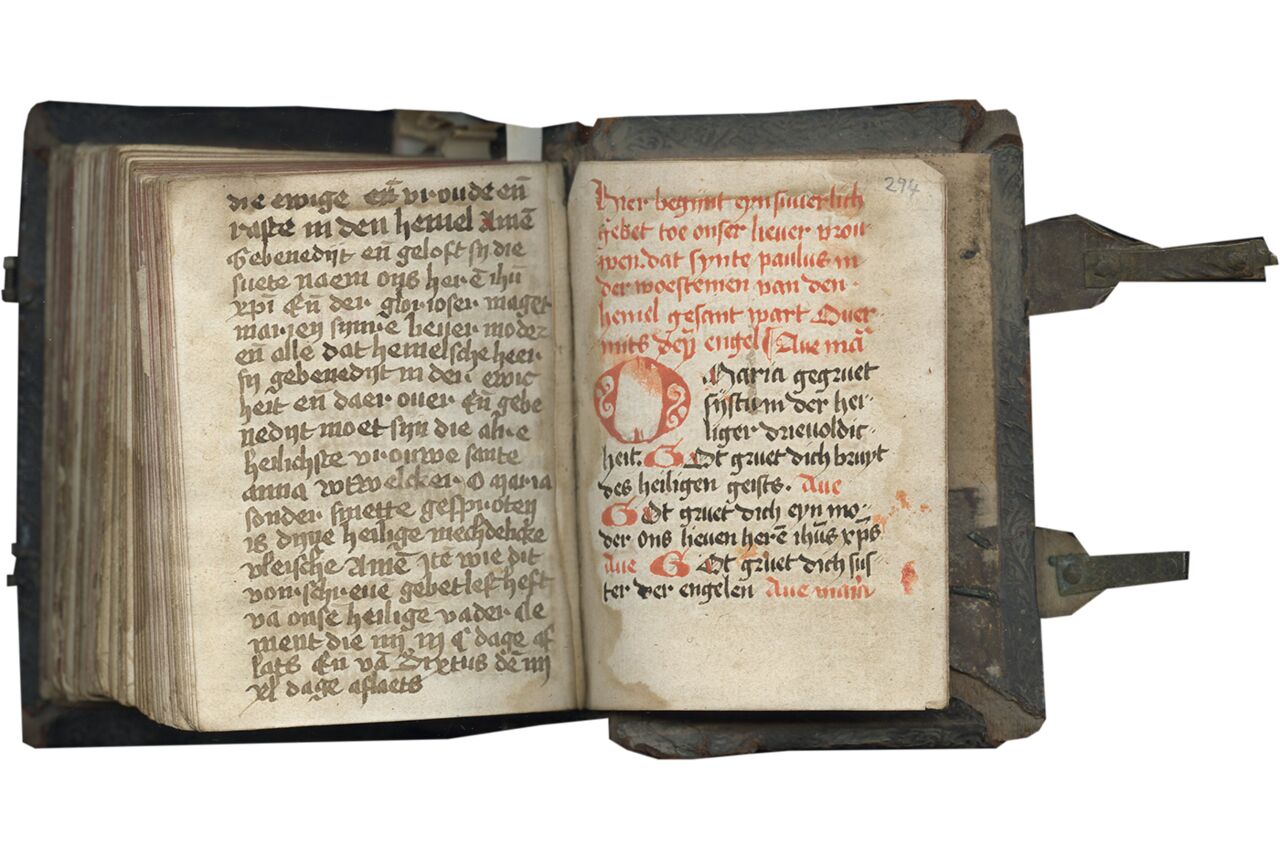 die ewige en̄ vroude en̄
raste in den hemel Amē
Gebenedijt en̄ geloft sij die
suete naem ons herē ihū
xpī En̄ der glorioser maget
marien sijnre lieuer moder
en̄ alle dat hemelsche heer
sij gebenedijt in der ewic
heit en̄ daer ouer En̄ gebe
nedijt moet sijn die alre
heilichste vrouwe sante
anna wtwelcker O maria
sonder smette gesproten
is dijne heilige mechdelicke
vleische Amē Jtē wie dit
vorschreue gebet lest heft
vā onse heilige vader cle
ment die dage af
lats En̄ vā Sixtus dē iiij
xl dage aflaets
294
Hier begijnt eyn suuerlich
gebet toe onser lieuer vrou
wen dat synte paulus in
der woestenien van den
hemel gesant wart Ouer
mits den engel Aue mā
O Maria gegruet
sijstu in der hei
liger drieuoldic
heit. Got gruet dich bruyt
des heiligen geists. Aue
Got gruet dich eyn mo
der ons lieuen herē ihūs xp̄s
Aue Got gruet dich sus
ter der engelen Aue maria